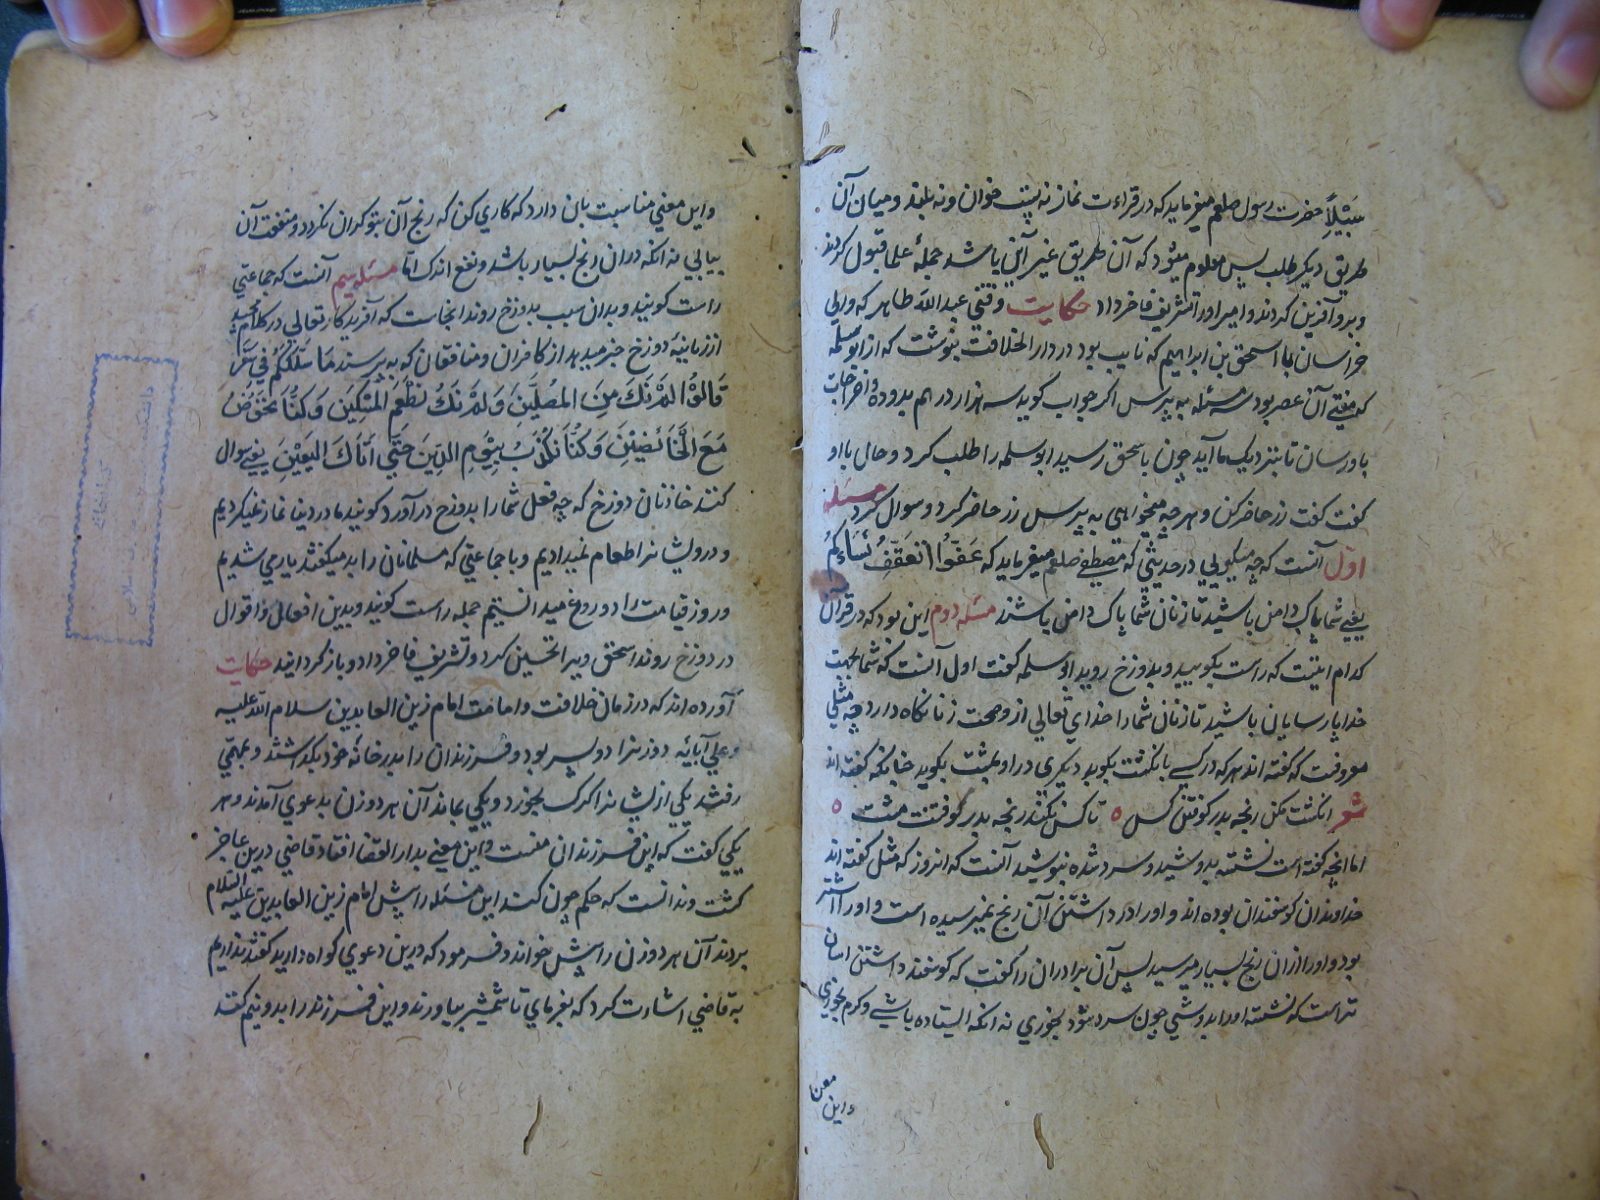 سَبِيْلاً حضرت رسول صلعم ميفرمايد كه در قراءت نماز نه پست خوان و نه بلند و ميان آن
طريق ديكر طلب پس معلوم ميشود كه آن طريق غير آئين باشد جملهٔ علما قبول كردند
و برو آفرين كردند و امير اورا تشريف فاخر داد حكايت وقتي عبد الله طاهر كه والي
خراسان با اسحق بن ابراهيم كه نايب بود در دار الخلافت بنوشت كه از ابو سلمه
كه مفتي آن عصر بود سه مسئله به پرس اكر جواب كويد سه هزار درهم بدو ده و اخراجات
باو رسان تا بنزديك ما آيد چون باسحق رسيد ابو سلمه را طلب كرد و حال با او
كفت كفت زر حاضر كن و هر چه ميخواهي به پرس زر حاضر كرد و سوال كرد مسئله
اول آنست كه چه ميكويي در حديثي كه مصطفي صلعم ميفرمايد كه عَفّوُا تعَفّفِ نساءكمُ
يعني شما پاك دامن باشيد تا زنان شما پاك دامن باشند مسئله دوم اين بود كه در قرآن
كدام آيتست كه راست بكوييد و بدوزخ رويد ابو سلمه كفت اول آنست كه شما بجهت
خدا پارسايان باشيد تا زنان شما را خداي تعالي از وصمت زنا نكاه دارد چه مثلي
معروفست كه كفته اند هر كه در كسي بانكشت بكوبد ديكري در او بمشت بكوبد چنانكه كفته اند
شعر انكشت مكن رنجه بدر كوفتن كس ه تا كس نكند رنجه بدر كوفتنت مشت ه
اما انچه كفته است نشسته بدوشيد و سرد شده بنوشيد آنست كه انروز كه مثل كفته اند
خداوندان كوسفندان بوده اند و اورا در داشتن آن رنج نميرسيده است و اورا اشتر
بود و اورا ازان رنج بسيار ميرسيد پس آن برادران را كفت كه كوسفند داشتن اسان
تر است كه نشسته اورا بدوشي چون سرد شود بخوري نه انكه ايستاده باشي و كرم بخوري
و اين معنا
و اين معني مناسبت بان دارد كه كاري كن كه رنج آن بتو كران نكردد و منفعت آن
بيابي نه انكه دران رنج بسيار باشد و نفع اندك امّا مسئله سيم آنست كه جماعتي
راست كويند و بدان سبب بدوزخ روند انجاست كه آفريد كار تعالي در كلام مجيد
از زبانيهٔ دوزخ خبر ميدهد از كافران و منافقان كه به پرسند مَا سَلَكَكُم في سَقَر
قَالوُا لمْ نَكَ مِنَ المُصَلّينَ وَلمْ نَكُ نُطْعِمُ المسْكِينَ وَكنُّا نخَوُضُ
مَعَ الْخائِضيْنَ وَكنُّا نكَذِّبُ بِيَوْمِ الدّينَ حَتّي اَتاَناَ اليَقينَ يعني سوال
كنند خازنان دوزخ كه چه فعل شما را بدوزخ در آورد كويند ما در دنيا نماز نميكرديم
و درويشانرا طعام نميداديم و با جماعتي كه مسلمانان را بد ميكفتند ياري شديم
و روز قيامت را دروغ ميدانستيم جمله راست كويند و بدين افعال و اقوال
در دوزخ روند اسحق ويرا تحسين كرد و تشريف فاخر داد و باز كردانيد حكايت
آورده اند كه در زمان خلافت و امامت امام زين العابدين سلام الله عليه
و علي آبائه دو زنرا دو پسر بود و فرزندان را بدر خانهٔ خود بكذاشتند و بمهمّي
رفتند يكي از ايشانرا كرك بخورد و يكي بماند آن هر دو زن بدعوي آمدند و هر
يكي كفت كه اين فرزند ان منست و اين معني بدار القضا افتاد قاضي درين عاجز
كشت و ندانست كه حكم چون كند اين مسئله را پيش امام زين العابدين عليه السلام
بردند آن هر دو زن را پيش خواند و فرمود كه درين دعوي كواه داريد كفتند نداريم
به قاضي اشارت كرد كه بفرماي تا شمشير بياورند و اين فرزند را بدو نيم كنند